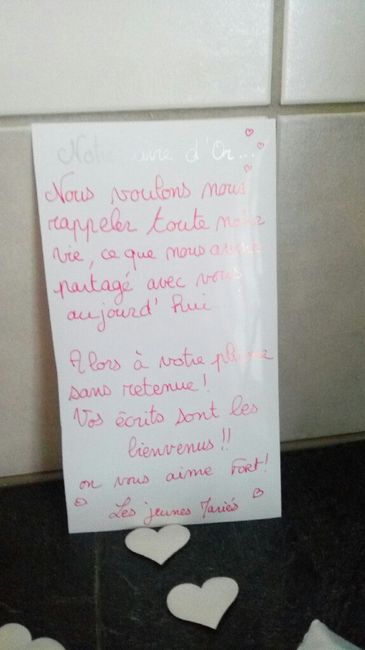 Notre Livre d'Or...
Nous voulons nous
rappeler toute notre
vie, ce que nous avons
partagé avec vous
aujourd'hui...
Alors à votre plume
sans retenue!
Vos écrits sont les
bienvenus!!
on vous aime Fort!
Les jeunes Mariés